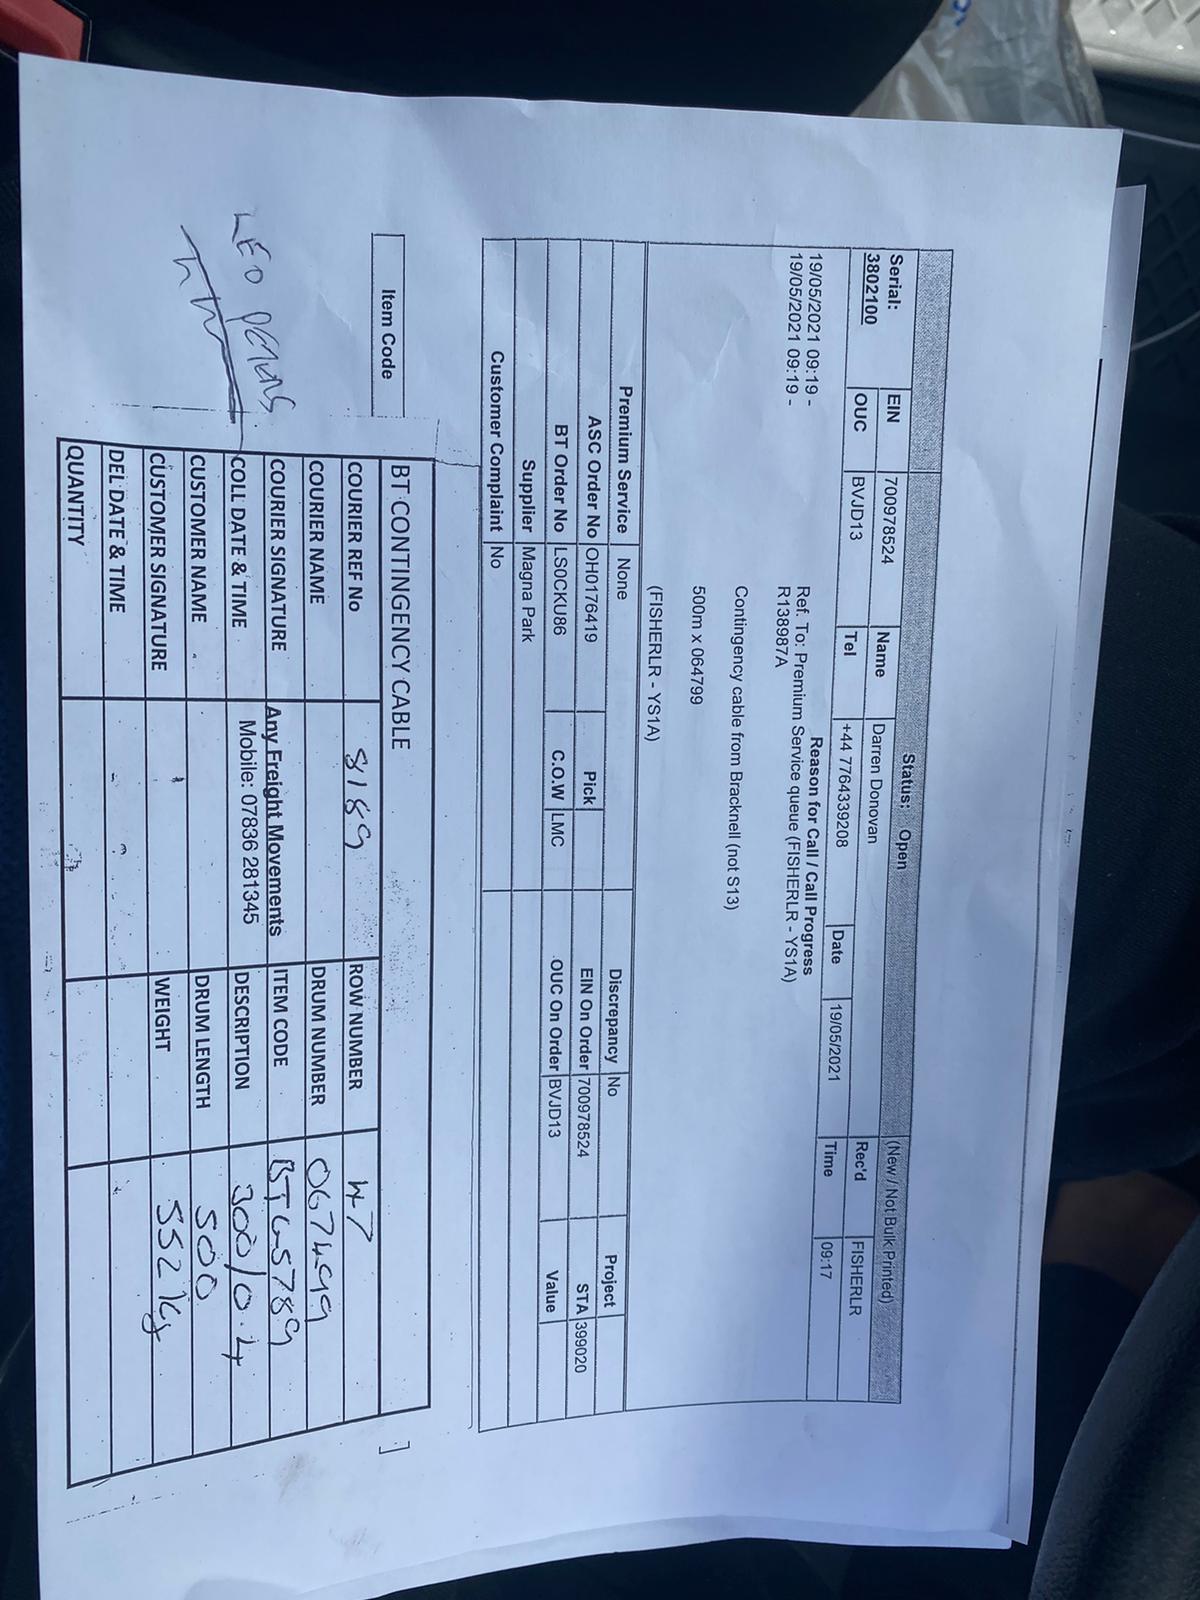 Status: Open (New / Not Bulk Printed)
Serial: 3802100 EIN 700978524 Name Darren Donovan Rec'd FISHERLR
OUC BVJD13 Tel +44 7764339208 Date 19/05/2021 Time 09:17
Reason for Call / Call Progress
19/05/2021 09:19 - Ref. To: Premium Service queue (FISHERLR - YS1A)
19/05/2021 09:19 - R138987A
Contingency cable from Bracknell (not S13)
500m x 064799
(FISHERLR - YS1A)
Premium Service None Discrepancy No Project
ASC Order No OH0176419 Pick EIN On Order 700978524 STA 399020
BT Order No LS0CKU86 C.O.W LMC OUC On Order BVJD13 Value
Supplier Magna Park
Customer Complaint No
Item Code
BT CONTINGENCY CABLE
COURIER REF No 8189 ROW NUMBER 47
COURIER NAME DRUM NUMBER 067499
COURIER SIGNATURE Any Freight Movements ITEM CODE
COLL DATE & TIME Mobile: 07836 281345 DESCRIPTION 300/0.4
CUSTOMER NAME DRUM LENGTH 500
CUSTOMER SIGNATURE WEIGHT 552 kg
DEL DATE & TIME
QUANTITY
LEO